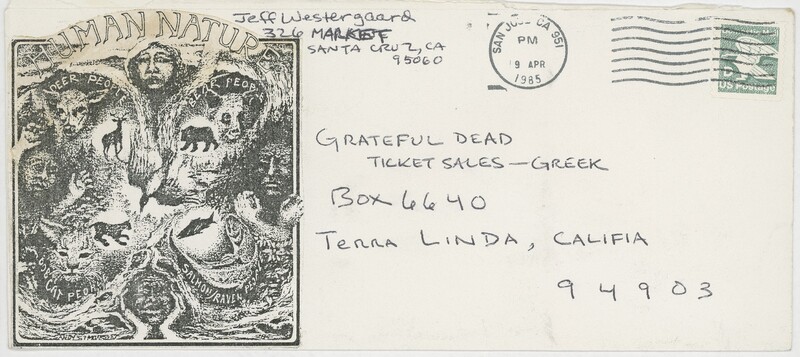 Jeff Westergaard
326 MARKET
SANTA CRUZ, CA
95060
SAN JOSE CA 951
PM
9 APR
1985
US Postage
HUMAN NATURE
DEER PEOPLE
BEAR PEOPLE
CAT PEOPLE
SALMON/RAVEN
GRATEFUL DEAD
TICKET SALES—GREEK
BOX 6640
TERRA LINDA, CALIFIA
94903